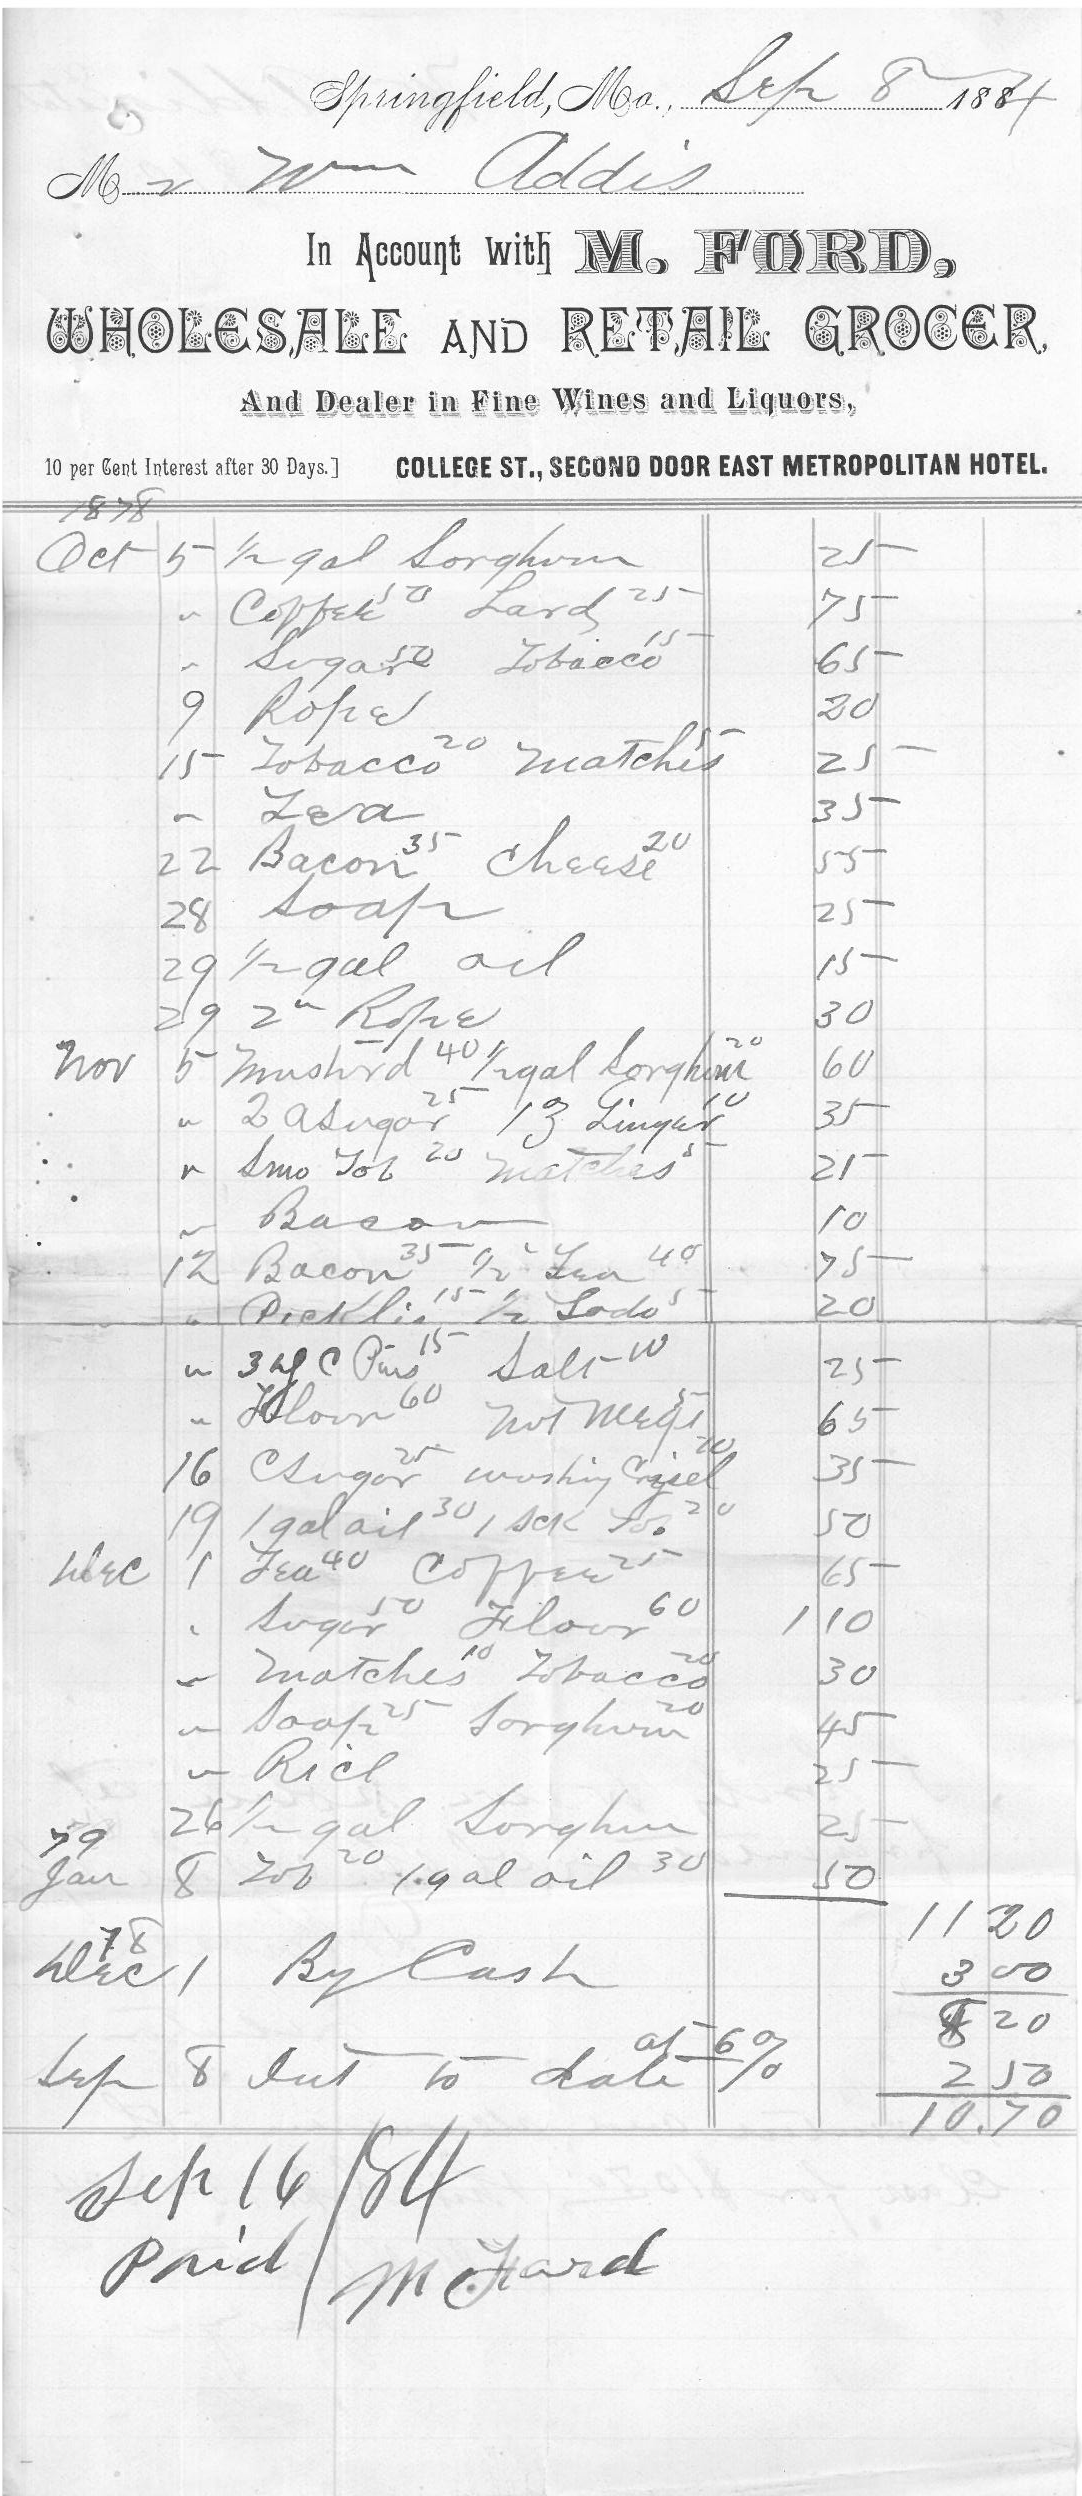 Springfield, Mo., Sep 8 1884
Mr Wm Addis
In Account with M. FORD,
WHOLESALE AND RETAIL GROCER,
And Dealer in Fine Wines and Liquors,
10 per Cent Interest after 30 Days.] COLLEGE ST., SECOND DOOR EAST METROPOLITAN HOTEL.
1878
Oct 5 1/2 gal Sorghum 25
" Coffee 50 Lard 25 75
" Sugar 50 Tobacco 15 65
9 Rope 20
15 Tobacco 20 Matches 5 25
" Tea 35
22 Bacon 35 Cheese 20 55
28 Soap 25
29 1/2 gal oil 15
29 2 " Rope 30
Nov 5 Mustrd 40 1/2 gal Sorghum 20 60
" 2 A Sugar 25 1 3 Ginger 10 35
" Smo Tob 20 Matches 5 25
" Bacon 10
12 Bacon 35 1/2 " Tea 40 75
" Pickles 15 1/2 Soda 5 20
" 3 C Pins 15 Salt 10 25
" Flour 60 Nut Megs 5 65
16 C Sugar 25 washing 10 35
19 1 gal oil 30 1 sck To. 20 50
Dec 1 Tea 40 Coffee 25 65
" Sugar 50 Flour 60 1 10
" Matches 10 Tobacco 20 30
" Soap 25 Sorghum 20 45
" Rice 25
26 1/2 gal Sorghum 25
79
Jan 8 Tob 20 1 gal oil 30 50
11 20
78
Dec 1 By Cash 3 00
8 20
Sep 8 Int to date at 6 % 2 50
10.70
Sep 16 / 84
Paid / M Ford